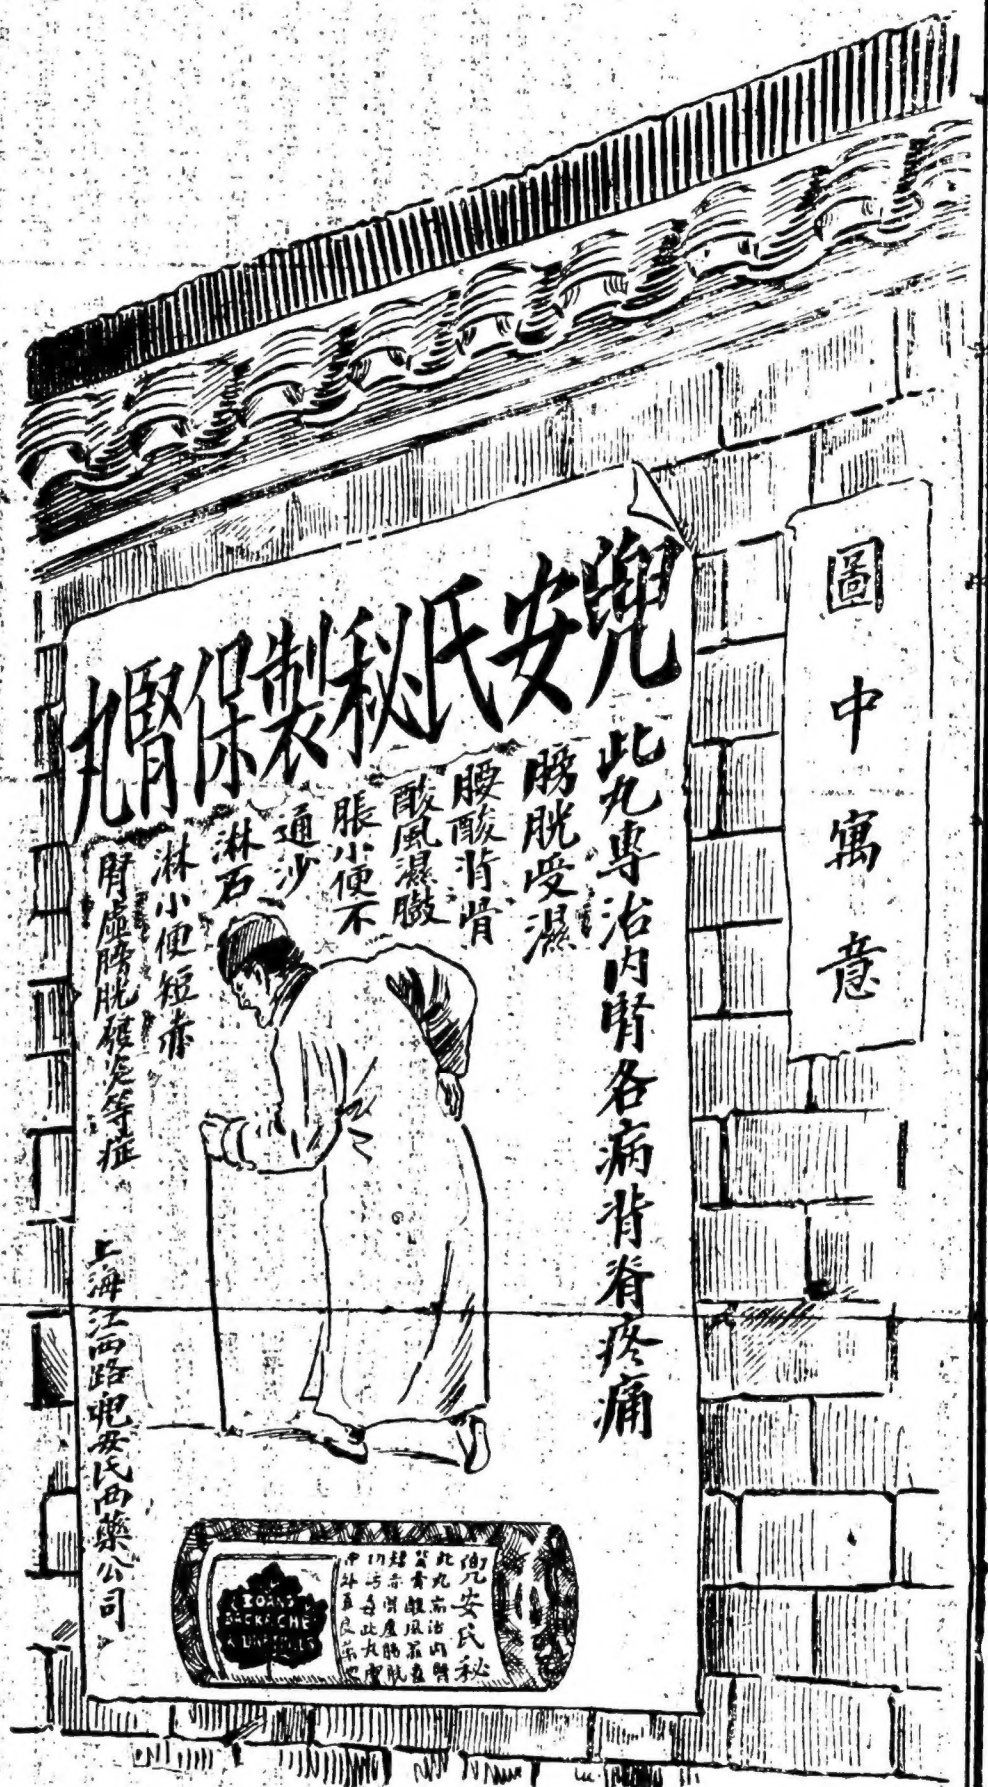 圖中寓意
兜安氏秘製保腎丸
此丸專治內腎各病背脊疼痛
膀胱受濕
腰酸背骨
酸風濕臌
脹小便不
通沙
淋石
淋小便短赤
腎虛膀胱發炎等症
上海江西路兜安氏西藥公司
兜安氏秘
此丸常治內腎
BACKACHE